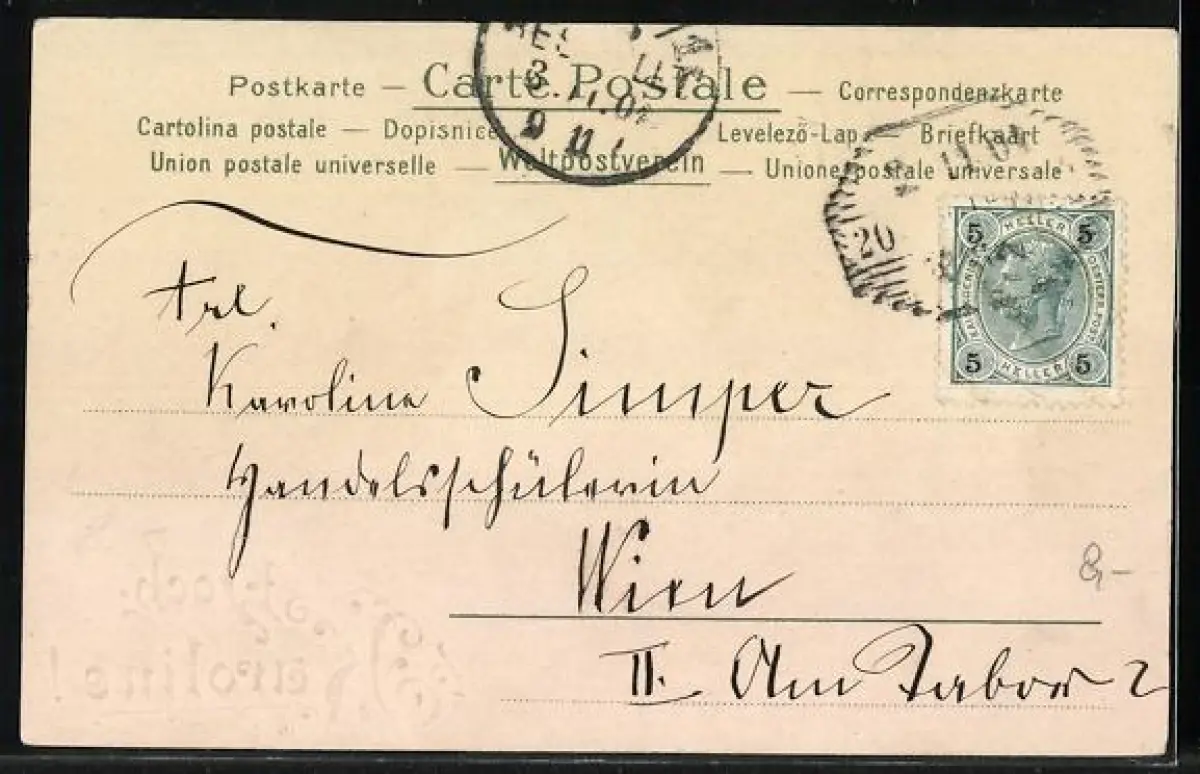 Postkarte — Carte Postale — Correspondenzkarte
Cartolina postale — Dopisnice Levelező-Lap Briefkaart
Union postale universelle — Weltpostverein — Unione postale universale
3. 11. 02
9 11
20
5 HELLER 5
5 HELLER 5
Frl.
Karoline Simper
Handelsschülerin
Wien
II. Am Tabor 2
8,-
Hoch
Karoline!